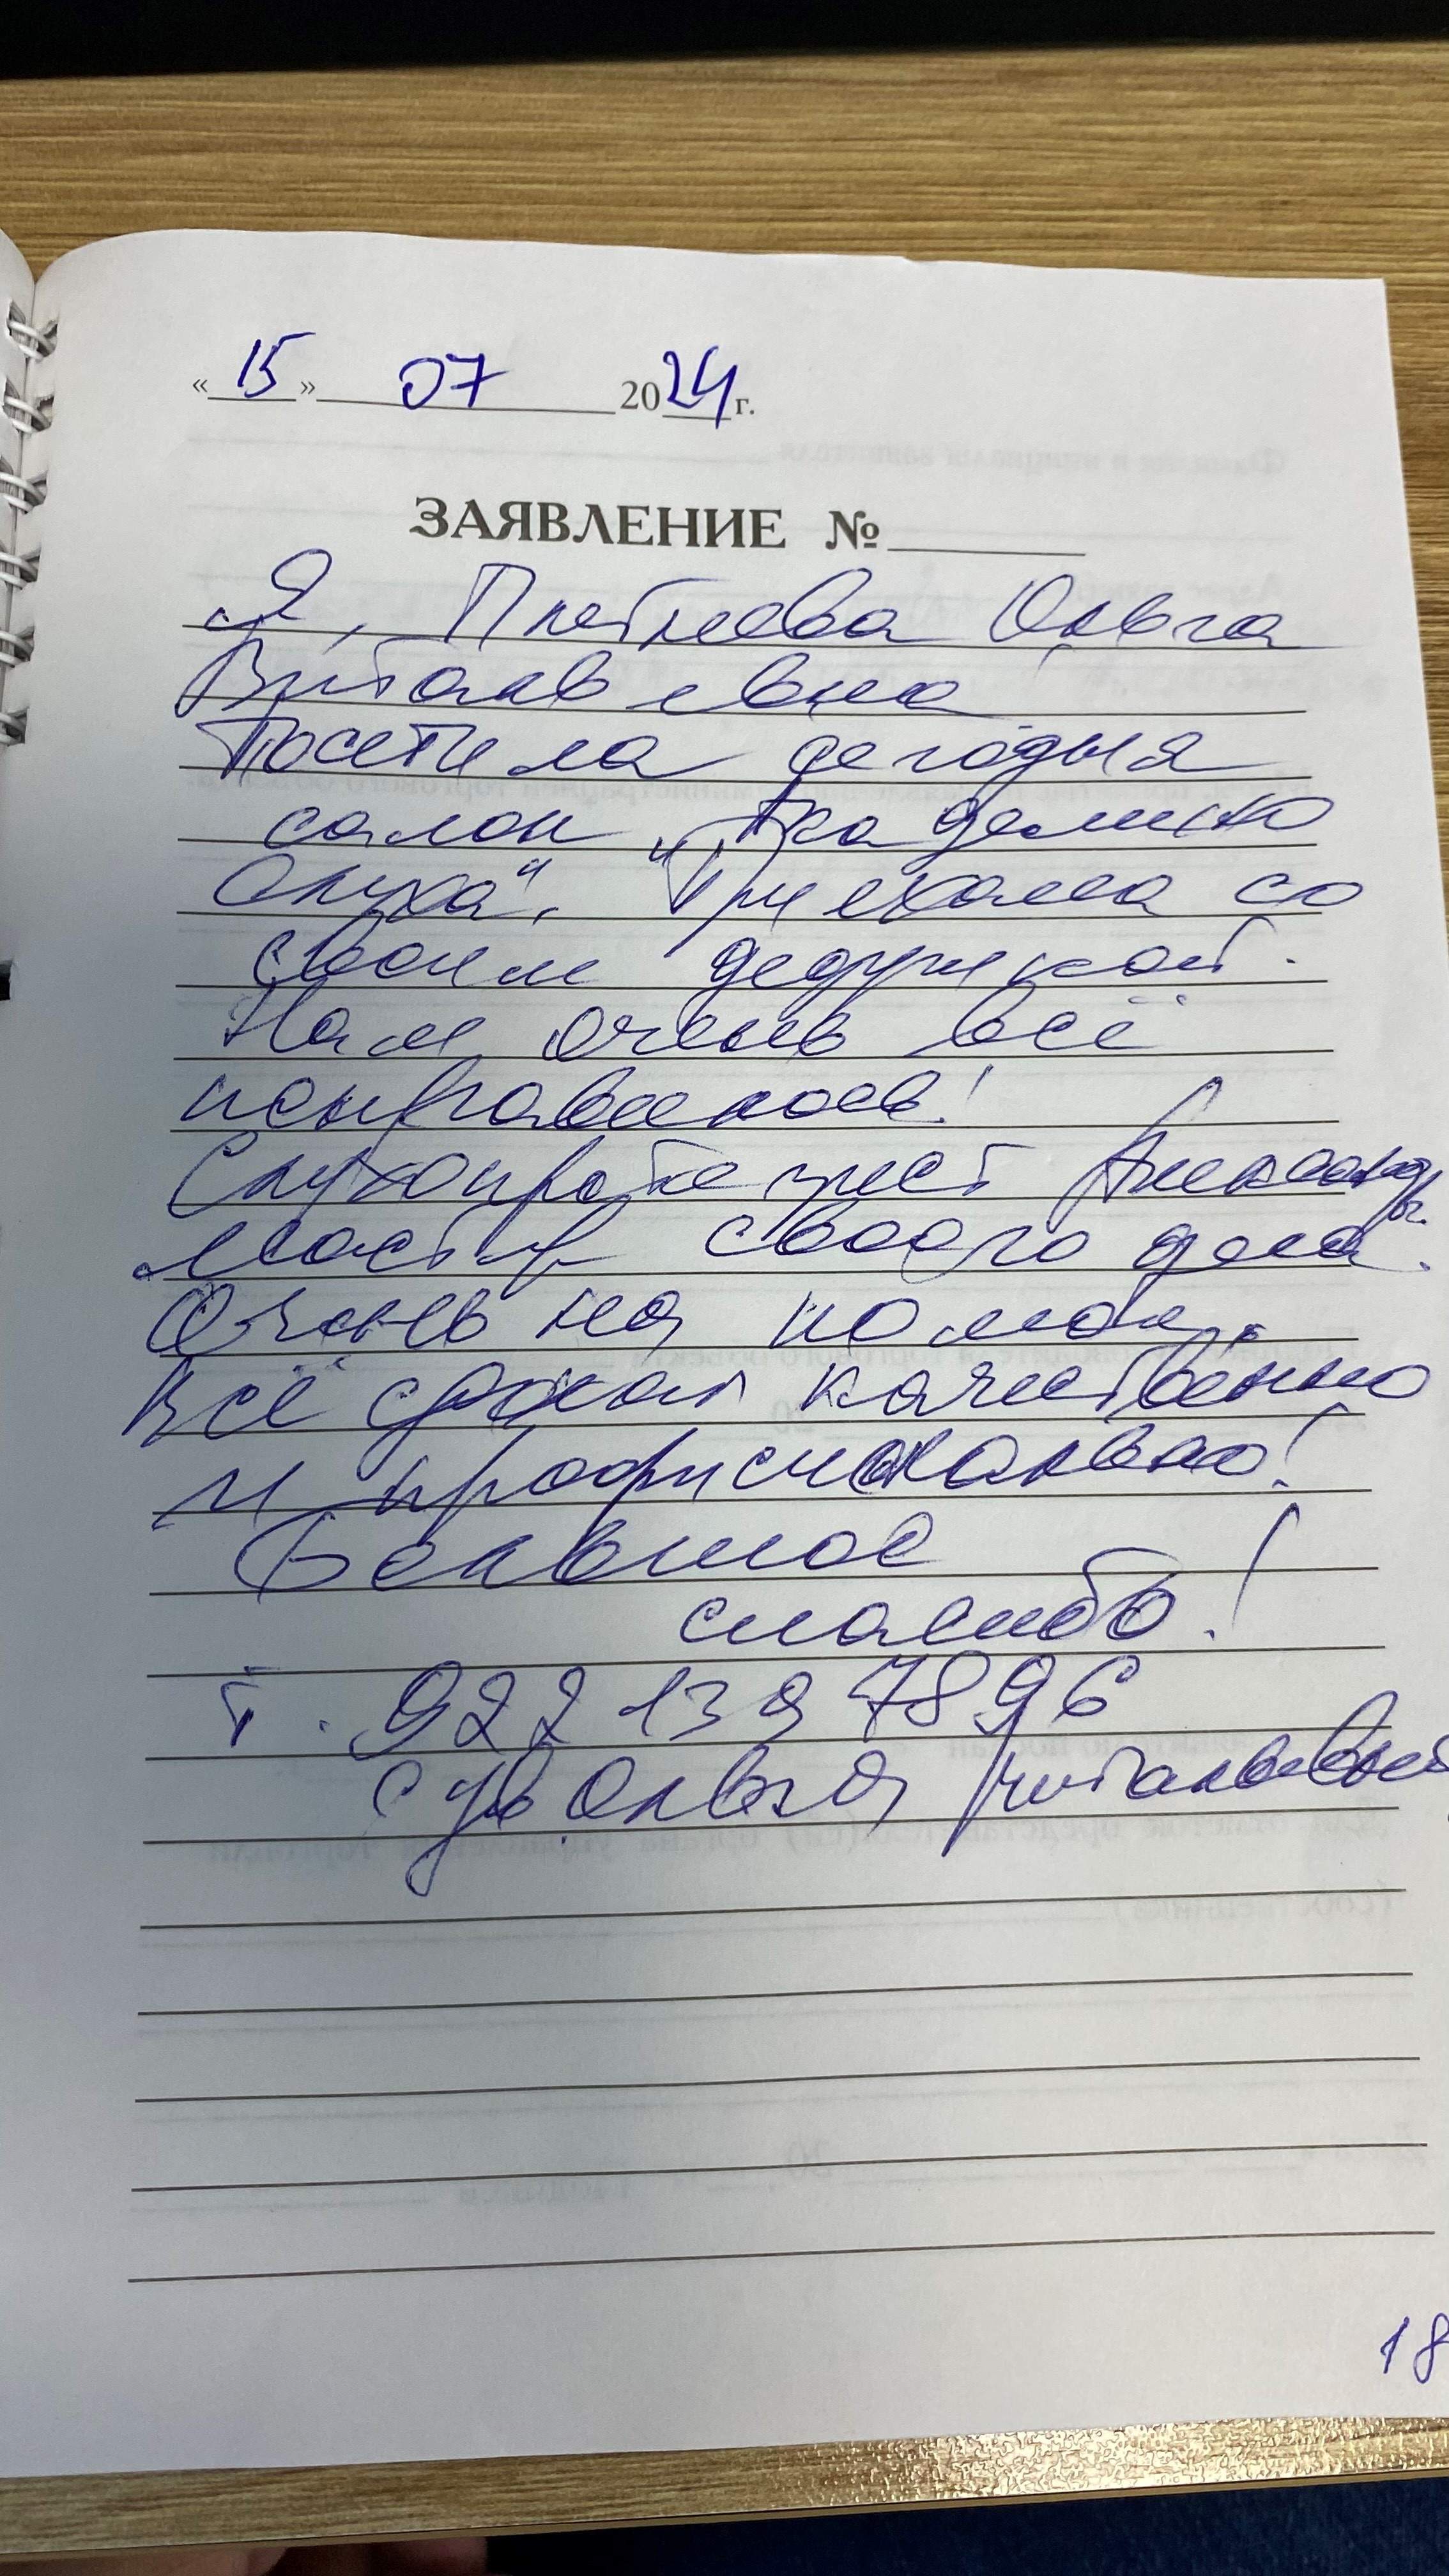 « 15 » 07 2024 г.
ЗАЯВЛЕНИЕ №
Я, Плетнева Ольга
Витальевна
Посетила сегодня
салон „Академию
Слуха“. Приехала со
своим дедушкой.
Нам очень всё
понравилось!
Слухопротезист Александр.
мастер своего дела.
Очень нам помог.
Всё сделал качественно
и професионально!
Большое
спасибо!
т. 922 139 7896
с ув. Ольга Витальевна
18